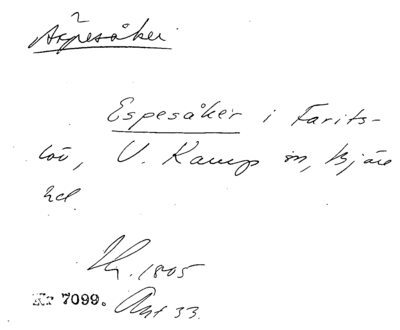 2
Äspesåker
Espesåker i Farits-
löv, V. Karup sn, Bjäre
hd.
1805
Kr 7099. Akt 33.